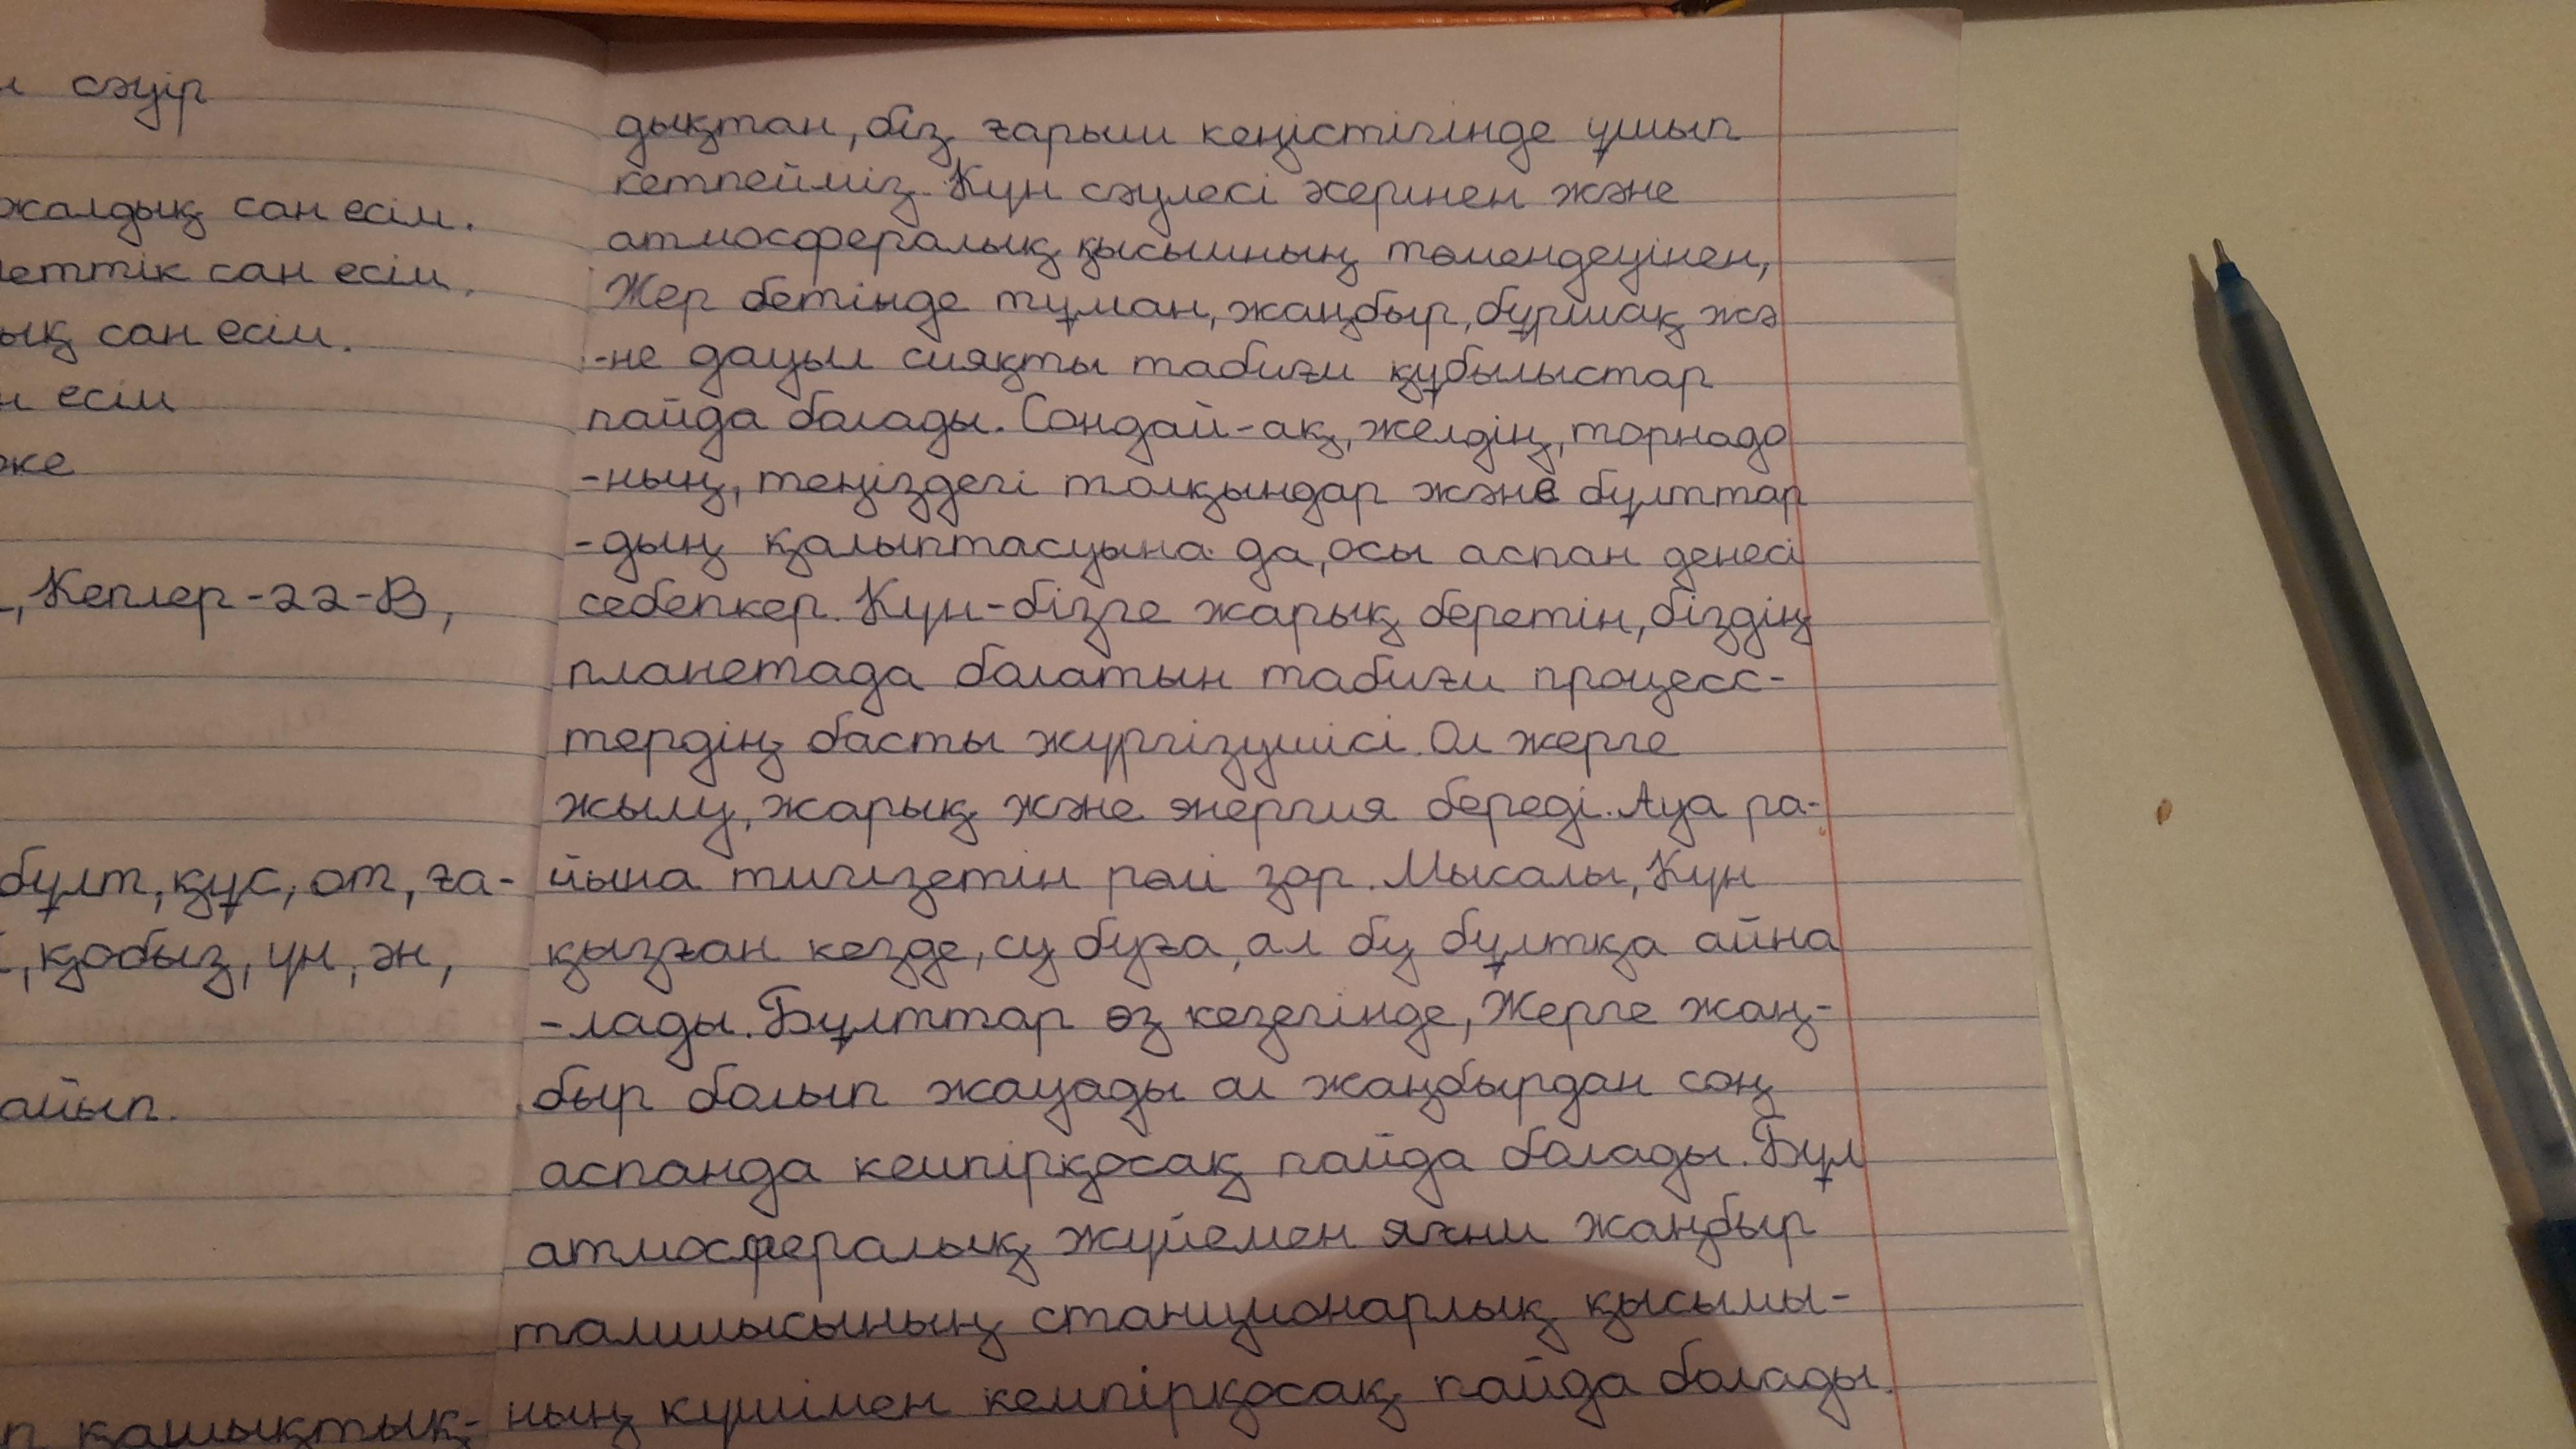 сәуір
жалдық сан есім.
еттік сан есім.
ық сан есім.
н есім
же
, Кеплер-22-В,
бұлт, құс, от, ға-
, қобыз, үн, ән,
айып.
п қашықтық-
дықтан, біз ғарыш кеңістігінде ұшып
кетпейміз. Күн сәулесі әсерінен және
атмосфералық қысымның төмендеуінен,
Жер бетінде тұман, жаңбыр, бұршақ жә
-не дауыл сияқты табиғи құбылыстар
пайда болады. Сондай-ақ, желдің, торнадо
-ның, теңіздегі толқындар және бұлттар
-дың қалыптасуына да, осы аспан денесі
себепкер. Күн-бізге жарық беретін, біздің
планетада болатын табиғи процесс-
тердің басты жүргізушісі. Ол жерге
жылу, жарық және энергия береді. Ауа ра-
йына тигізетін рөлі зор. Мысалы, Күн
қызған кезде, су буға, ал бу бұлтқа айна
-лады. Бұлттар өз кезегінде, Жерге жаң-
быр болып жауады ал жаңбырдан соң
аспанда кемпірқосақ пайда болады. Бұл
атмосфералық жүйемен яғни жаңбыр
тамшысының станционарлық қысымы-
ның күшімен кемпірқосақ пайда болады.